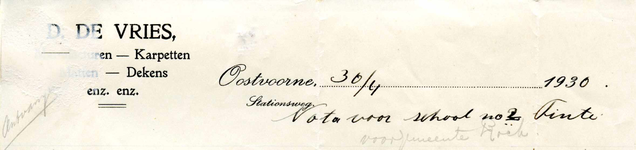 D. DE VRIES,
uren — Karpetten
— Dekens
enz. enz.
Oostvoorne, 30/4 1930.
Stationsweg
Nota voor school no 2 Tinte
voor gemeente